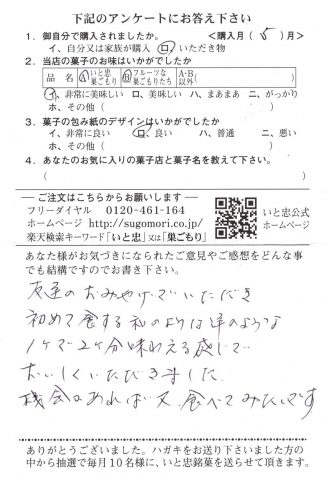 下記のアンケートにお答え下さい
1．御自分で購入されましたか。　＜購入月（5）月＞
イ、自分又は家族が購入　ロ、いただき物
2．当店の菓子のお味はいかがでしたか
品 名　Ⓐいと忠巣ごもり　Ⓑフルーツな巣ごもりたち　A・B以外（　　　）
イ、非常に美味しい　ロ、美味しい　ハ、まあまあ　ニ、がっかり
ホ、その他（　　　）
3．菓子の包み紙のデザインはいかがでしたか
イ、非常に良い　ロ、良い　ハ、普通　ニ、悪い
ホ、その他（　　　）
4．あなたのお気に入りの菓子店と菓子名を教えて下さい。
（　　　）
ご注文はこちらからお願いします
フリーダイヤル　0120-461-164
ホームページ　http://sugomori.co.jp/
楽天検索キーワード「いと忠」又は「巣ごもり」
いと忠公式
ホームページ
あなた様がお気づきになられたご意見やご感想をどんな事
でも結構ですのでお書き下さい。
友達のおみやげでいただき
初めて食する和のような洋のような
1ケで2ケ分味わえる感じで
おいしくいただきました
機会があれば又、食べてみたいです
ありがとうございました。ハガキをお送り下さいました方の
中から抽選で毎月10名様に、いと忠銘菓を送らせて頂きます。